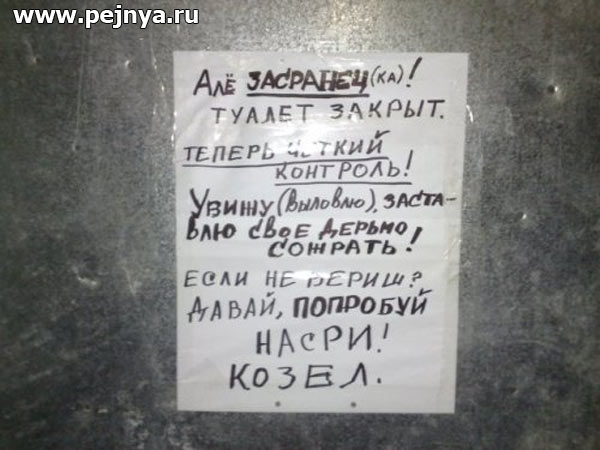 www.pejnya.ru
АЛЁ ЗАСРАНЕЦ(КА)!
ТУАЛЕТ ЗАКРЫТ.
ТЕПЕРЬ ЧЕТКИЙ
КОНТРОЛЬ!
УВИЖУ(ВЫЛОВЛЮ), ЗАСТА-
ВЛЮ СВОЕ ДЕРЬМО
СОЖРАТЬ!
ЕСЛИ НЕ ВЕРИШ?
ДАВАЙ, ПОПРОБУЙ
НАСРИ!
КОЗЕЛ.